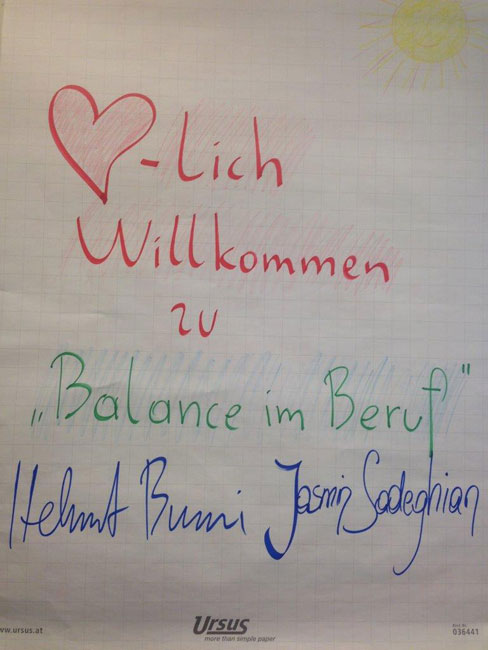 -lich
Willkommen
zu
„Balance im Beruf"
Helmut Jasmin Sadeghian
www.ursus.at
Ursus
more than simple paper
036441